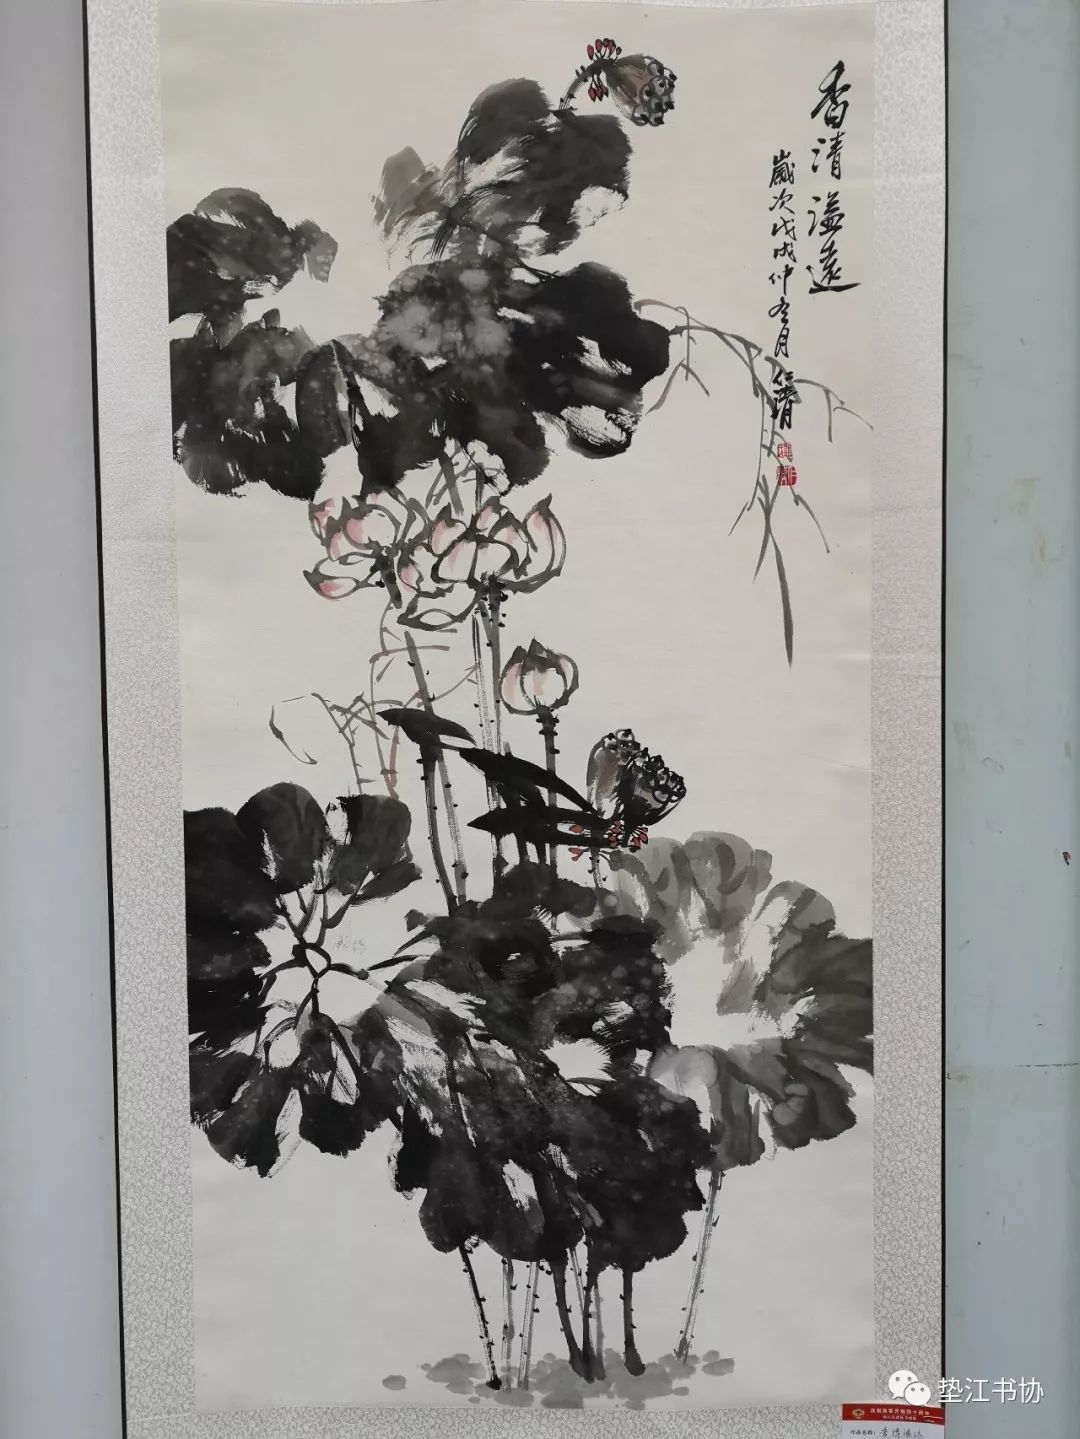 香清溢遠
歲次戊戌仲冬月 仁清
垫江书协
庆祝改革开放四十周年
作品名称：香清溢远